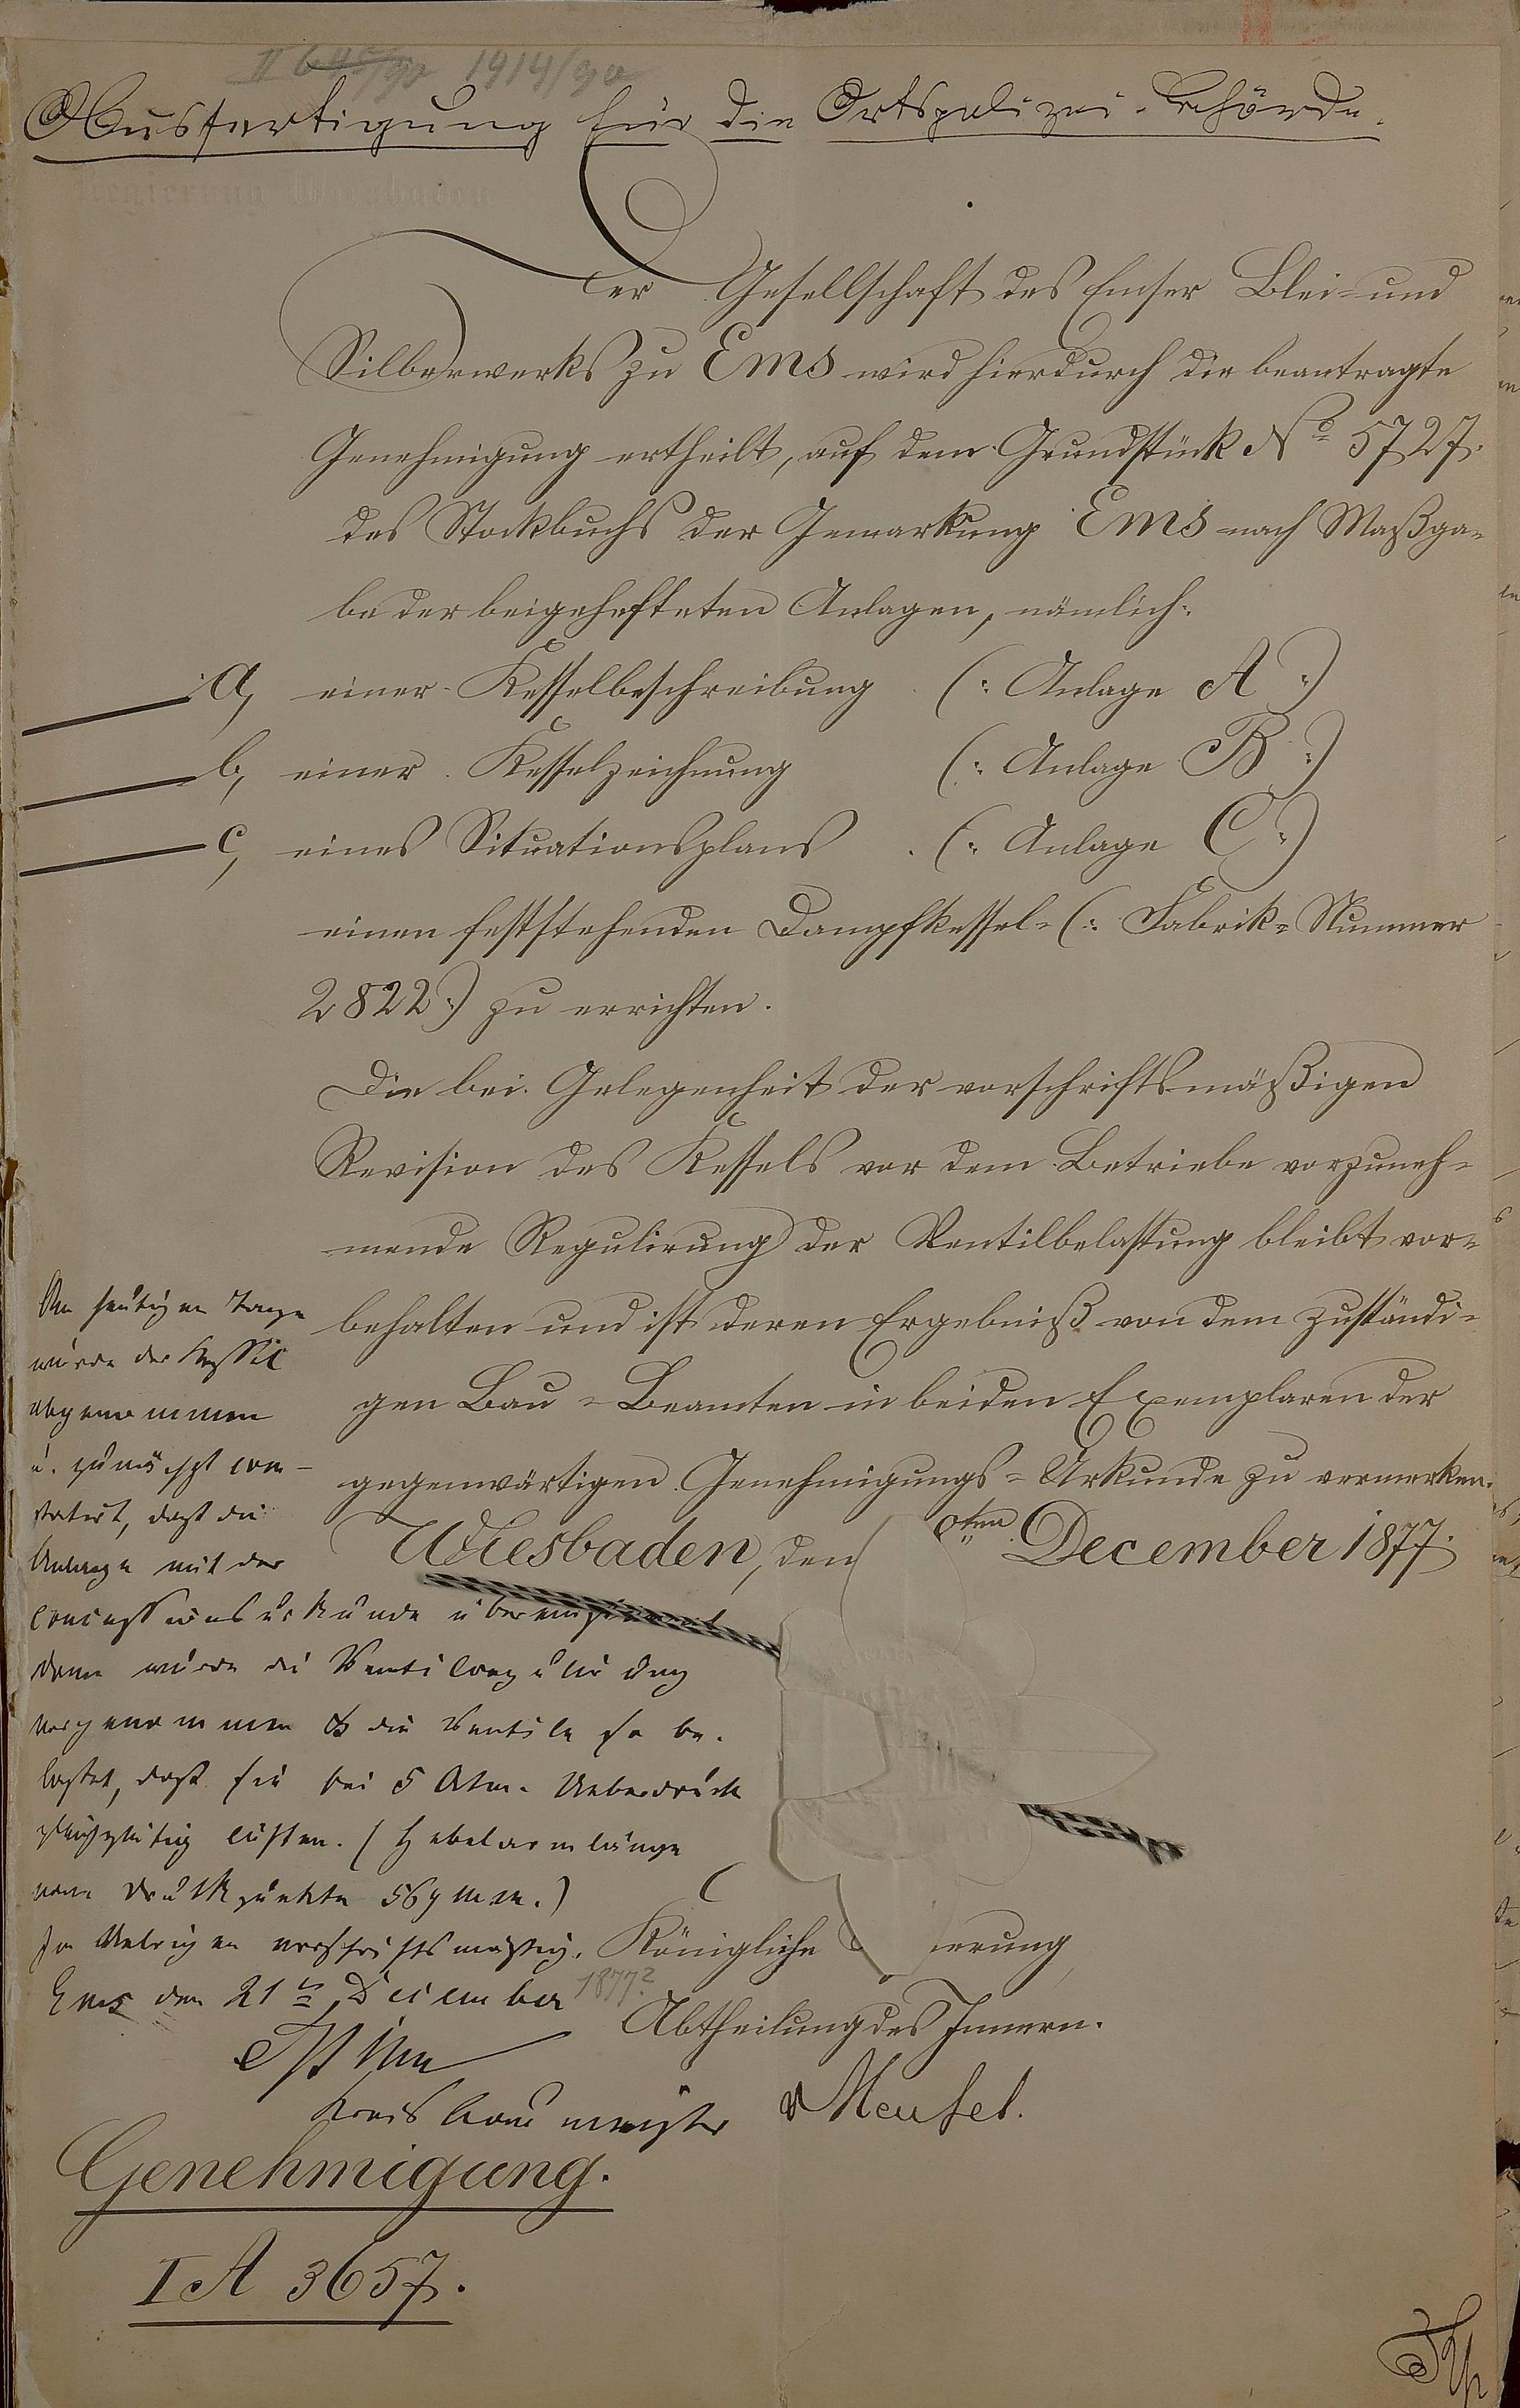 1914/90
Ausfertigung für die Ortspolizei-Behörde.
Regierung Wiesbaden
Der Gesellschaft des Emser Blei- und
Silberwerks zu Ems wird hierdurch die beantragte
Genehmigung ertheilt, auf dem Grundstück No 5727.
des Stockbuchs der Gemarkung Ems nach Maßga-
be der beigehefteten Anlagen, nämlich:
a, einer Kesselbeschreibung (: Anlage A :)
b, einer Kesselzeichnung (: Anlage B :)
c, eines Situationsplans (: Anlage C :)
einen feststehenden Dampfkessel- (: Fabrik-Nummer
2822 :) zu errichten.
Die bei Gelegenheit der vorschriftsmäßigen
Revision des Kessels vor dem Betriebe vorzuneh-
mende Regulirung der Ventilbelastung bleibt vor-
behalten und ist deren Ergebniß von dem zuständi-
gen Bau-Beamten in beiden Exemplaren der
gegenwärtigen Genehmigungs-Urkunde zu vermerken.
Wiesbaden, den December 1877.
Am heutigen Tage
wurde der Kessel
abgenommen
u. zunächst con-
statirt, daß die
Anlage mit der
Concessionsurkunde übereinstimmt
dann wurde die Ventilregulirung
vorgenommen & die Ventile so be-
lastet, daß sie bei 5 Atm. Ueberdruck
gleichzeitig lüften. (Hebelarmlänge
vom Druckpunkte 569 mm.)
Im Uebrigen vorschriftsmäßig.
Ems den 21ten December 1877?
Kreisbaumeister
Königliche ierung
Abtheilung des Innern.
Meusel.
Genehmigung.
I A 3657.